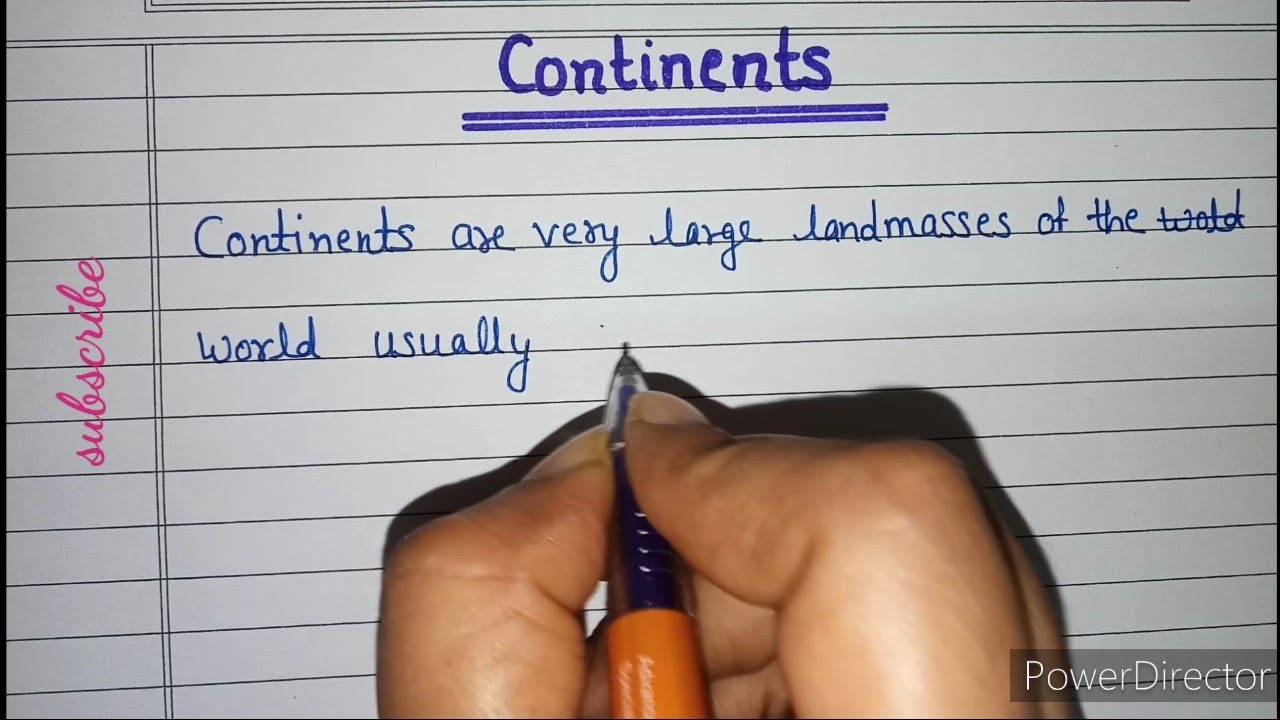 Continents
Continents are very large landmasses of the world
world usually
subscribe
PowerDirector